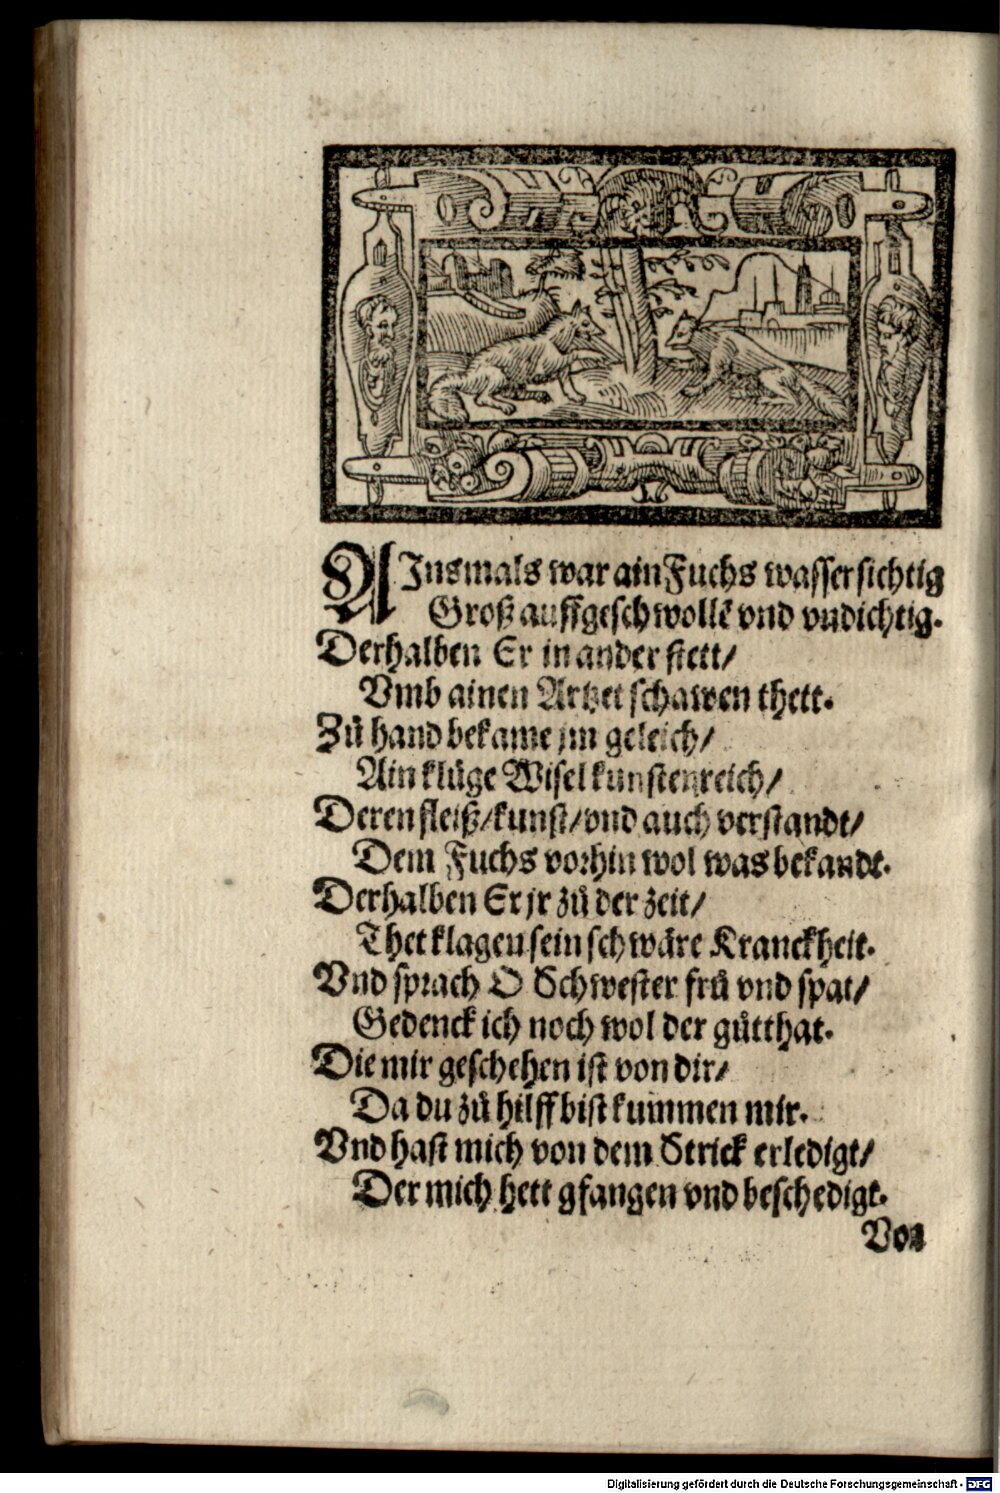 17
AInsmals war ain Fuchs wassersichtig
Groß auffgeschwollẽ vnd vndichtig.
Derhalben Er in ander stett/
Vmb ainen Artzet schawen thett.
Zů hand bekame jm geleich/
Ain klůge Wisel kunstenreich/
Deren fleiß/kunst/vnd auch verstandt/
Dem Fuchs vorhin wol was bekandt.
Derhalben Er jr zů der zeit/
Thet klagen sein schwäre Kranckheit.
Vnd sprach O Schwester frů vnd spat/
Gedenck ich noch wol der gůtthat.
Die mir geschehen ist von dir/
Da du zů hilff bist kummen mir.
Vnd hast mich von dem Strick erledigt/
Der mich hett gfangen vnd beschedigt.
Vor
Digitalisierung gefördert durch die Deutsche Forschungsgemeinschaft - DFG